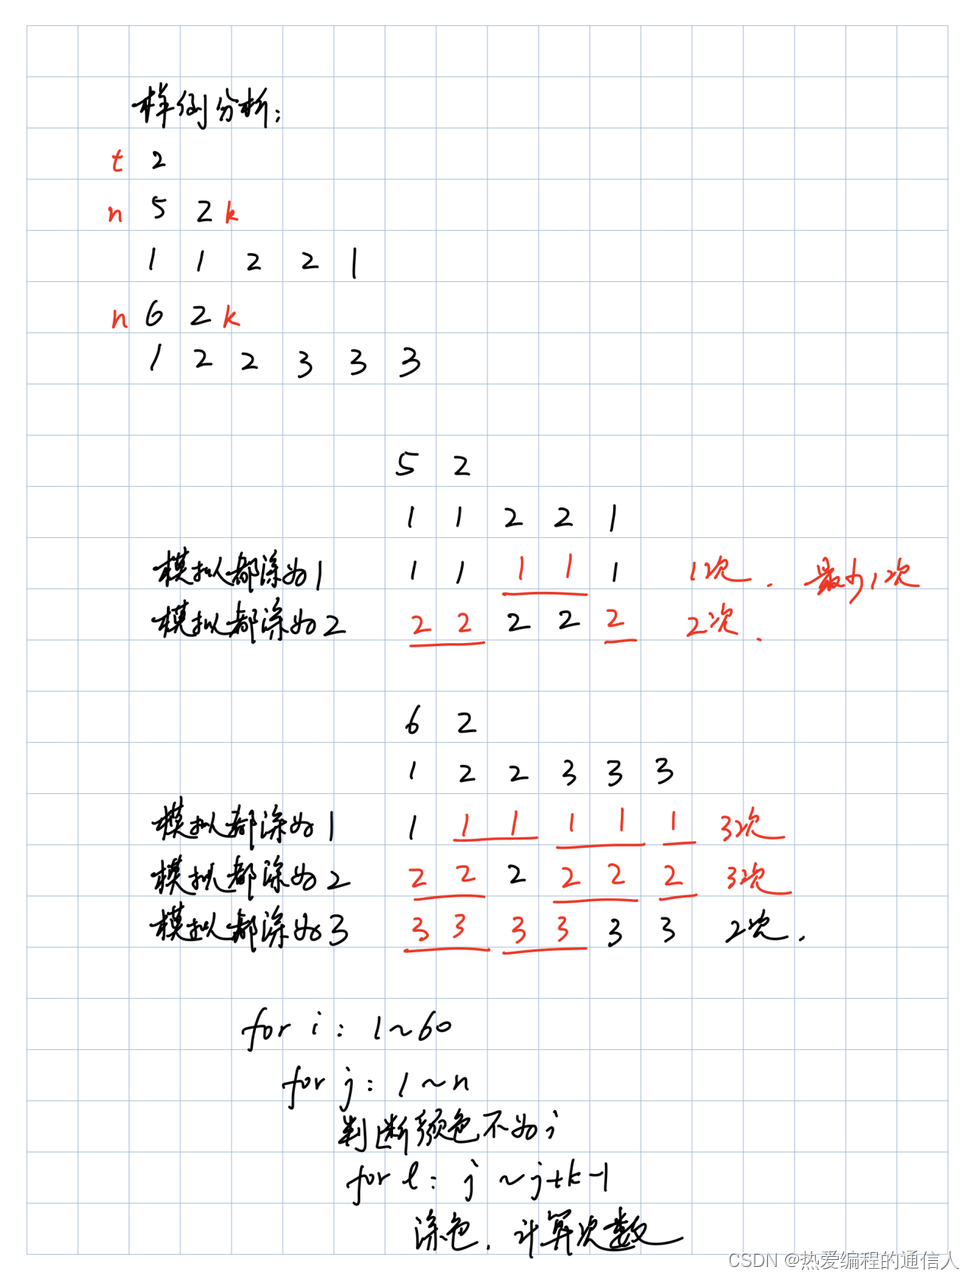 样例分析:
t 2
n 5 2 k
1 1 2 2 1
n 6 2 k
1 2 2 3 3 3
5 2
1 1 2 2 1
模拟都涂为1 1 1 1 1 1 1次. 最少1次
模拟都涂为2 2 2 2 2 2 2次.
6 2
1 2 2 3 3 3
模拟都涂为1 1 1 1 1 1 1 3次
模拟都涂为2 2 2 2 2 2 2 3次
模拟都涂为3 3 3 3 3 3 3 2次.
for i: 1~60
for j: 1~n
判断颜色不为i
for l: j ~j+k-1
涂色, 计算次数
CSDN @热爱编程的通信人